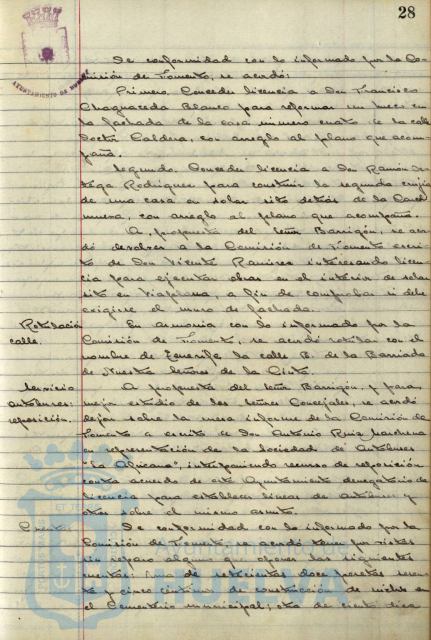 28
AYUNTAMIENTO DE HUELVA
De conformidad con lo informado por la Co-
misión de Fomento, se acordó:
Primero. Conceder licencia a Don Francisco
Chaguaceda Blanco para reformar un hueco en
la fachada de la casa número cuatro de la calle
Doctor Caldera, con arreglo al plano que acom-
paña.
Segundo. Conceder licencia a Don Ramón Or-
tega Rodríguez para construir la segunda crujía
de una casa en solar sito detrás de la
con arreglo al plano que acompaña.
A propuesta del Señor Barrigón, se acor-
dó devolver a la Comisión de Fomento escri-
to de Don Vicente Ramírez interesando licen-
cia para ejecutar obras en el interior de solar
sito en a fin de comprobar si debe
exigirse el muro de fachada.
Rotulación
calle.
En armonía con lo informado por la
Comisión de Fomento, se acordó rotular con el
nombre de Tenerife, la calle B. de la Barriada
de Nuestra Señora de la Cinta.
Servicio
autobuses:
reposición.
A propuesta del Señor Barrigón, y para
mejor estudio de los Señores Concejales, se acordó
dejar sobre la mesa informe de la Comisión de
Fomento a escrito de Don Antonio Ruiz Marchena
en representación de la Sociedad de Autobuses
"La Africana", interponiendo recurso de reposición
contra acuerdo de este Ayuntamiento denegatorio de
licencia para establecer líneas de autobuses y
otros sobre el mismo asunto.
Cuentas.
De conformidad con lo informado por la
Comisión de Fomento se acordó tener por vistas
sin reparo alguno que oponer las siguientes
cuentas: Una de setecientas doce pesetas
y cinco céntimos de construcción de nichos en
el Cementerio municipal; otra de ciento
Ayuntamiento de
HUELVA